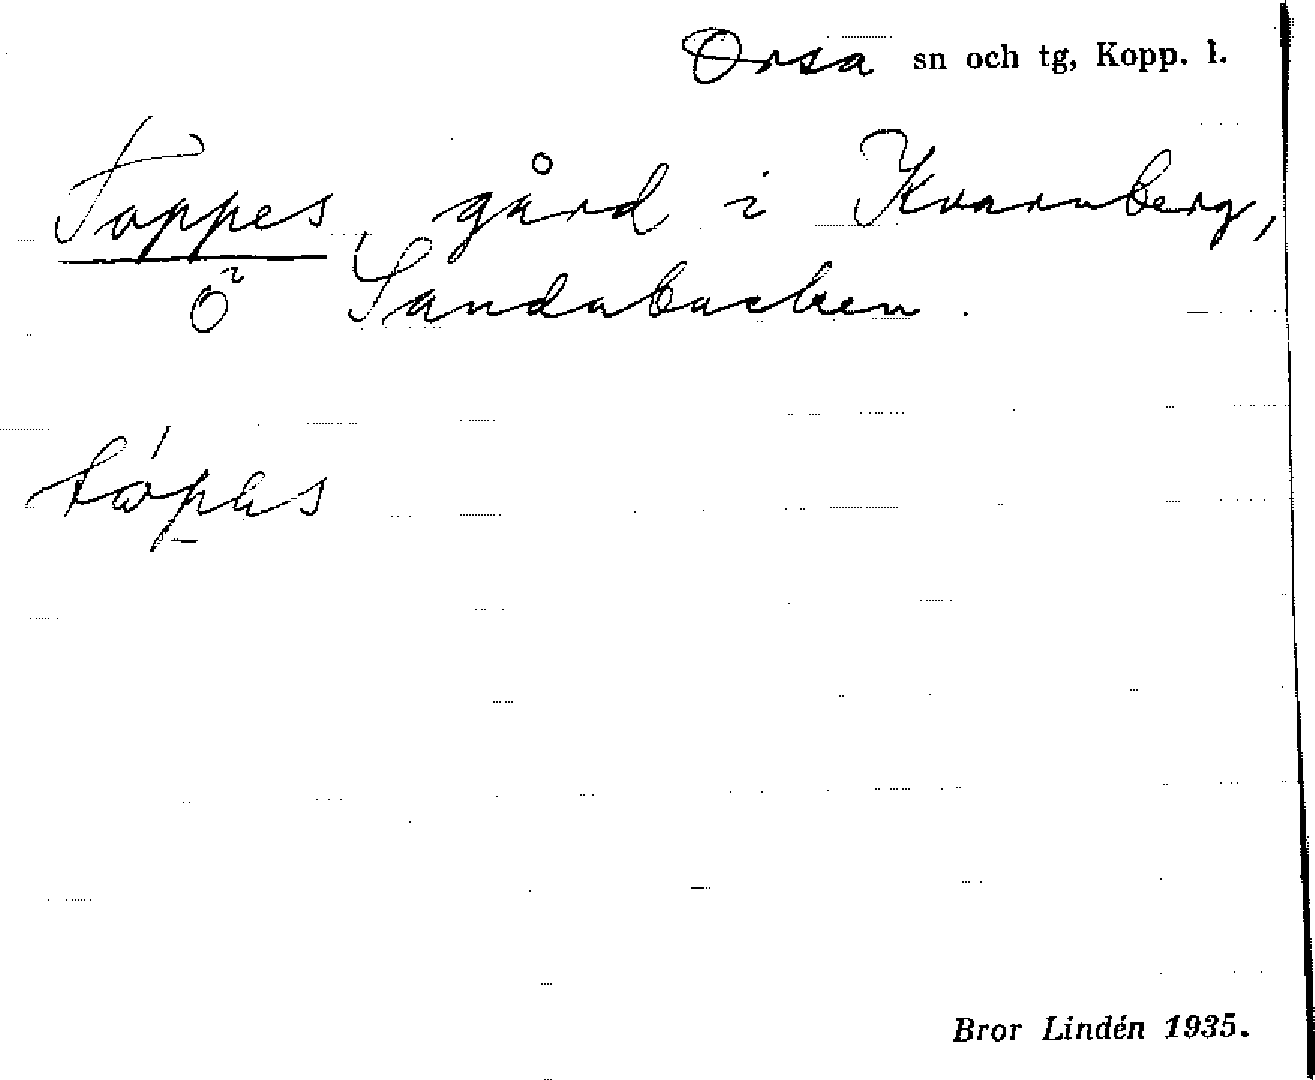 Orsa sn och tg, Kopp. l.
Toppes gård i Kvarnberg,
Sandabacken.
Bror Lindén 1935.